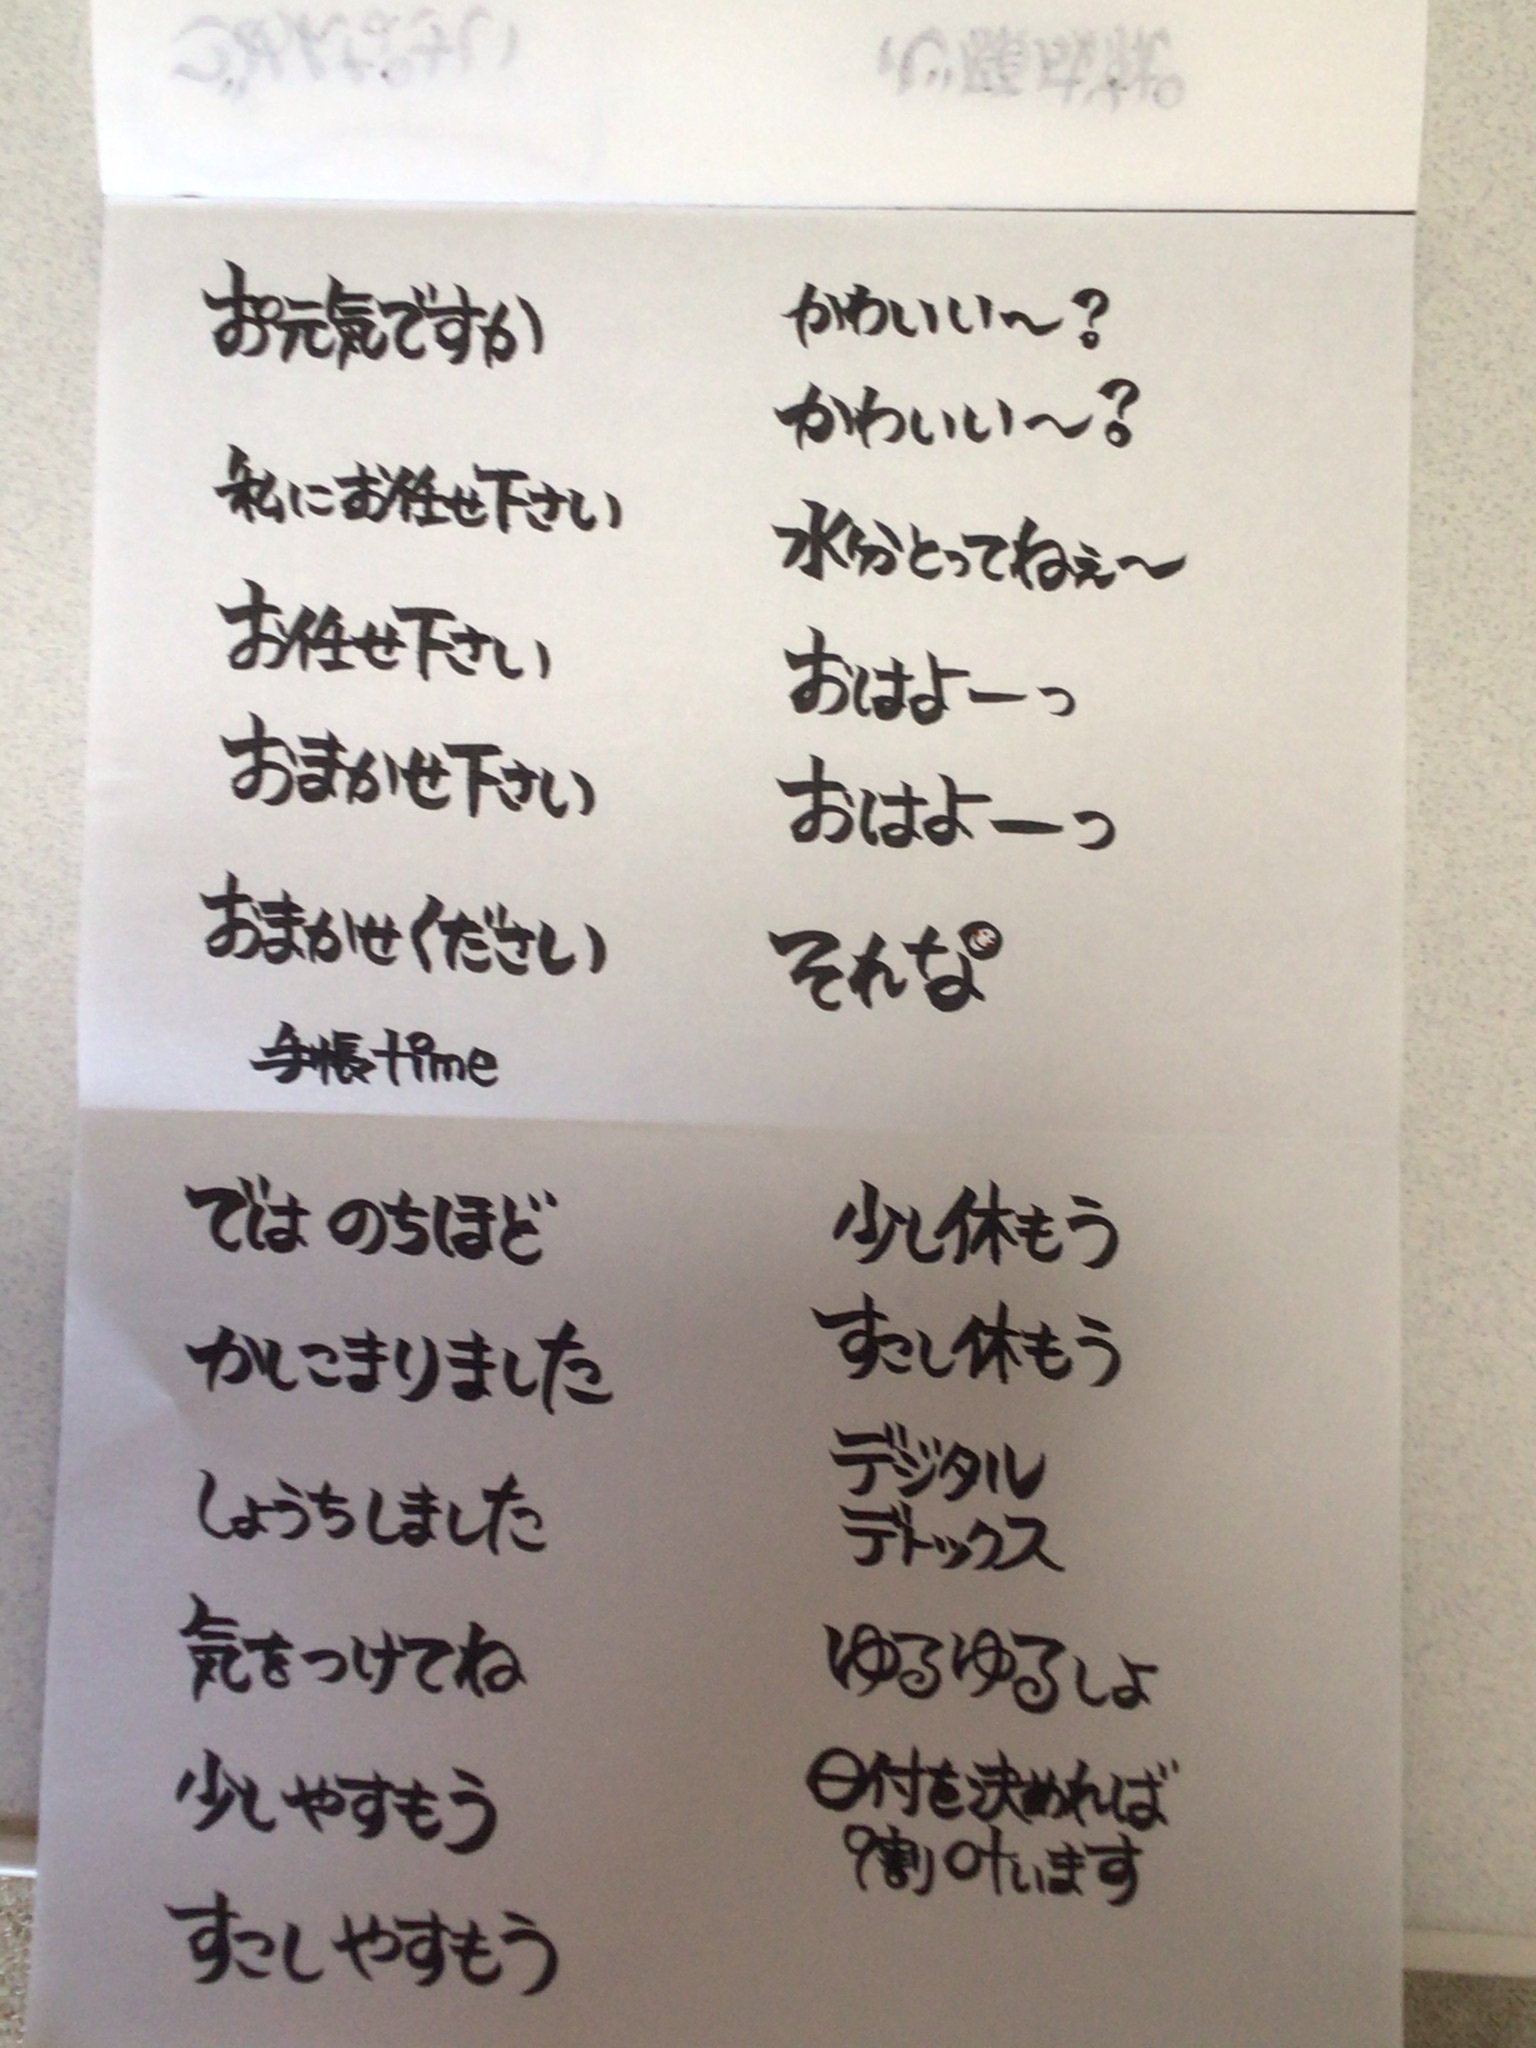 お元気ですか
私にお任せ下さい
お任せ下さい
おまかせ下さい
おまかせください
手帳time
かわいい〜?
かわいい〜?
水分とってねぇ〜
おはよーっ
おはよーっ
それな
では のちほど
かしこまりました
しょうちしました
気をつけてね
少しやすもう
すこしやすもう
少し休もう
すこし休もう
デジタル
デトックス
ゆるゆるしよ
日付を決めれば
9割叶います